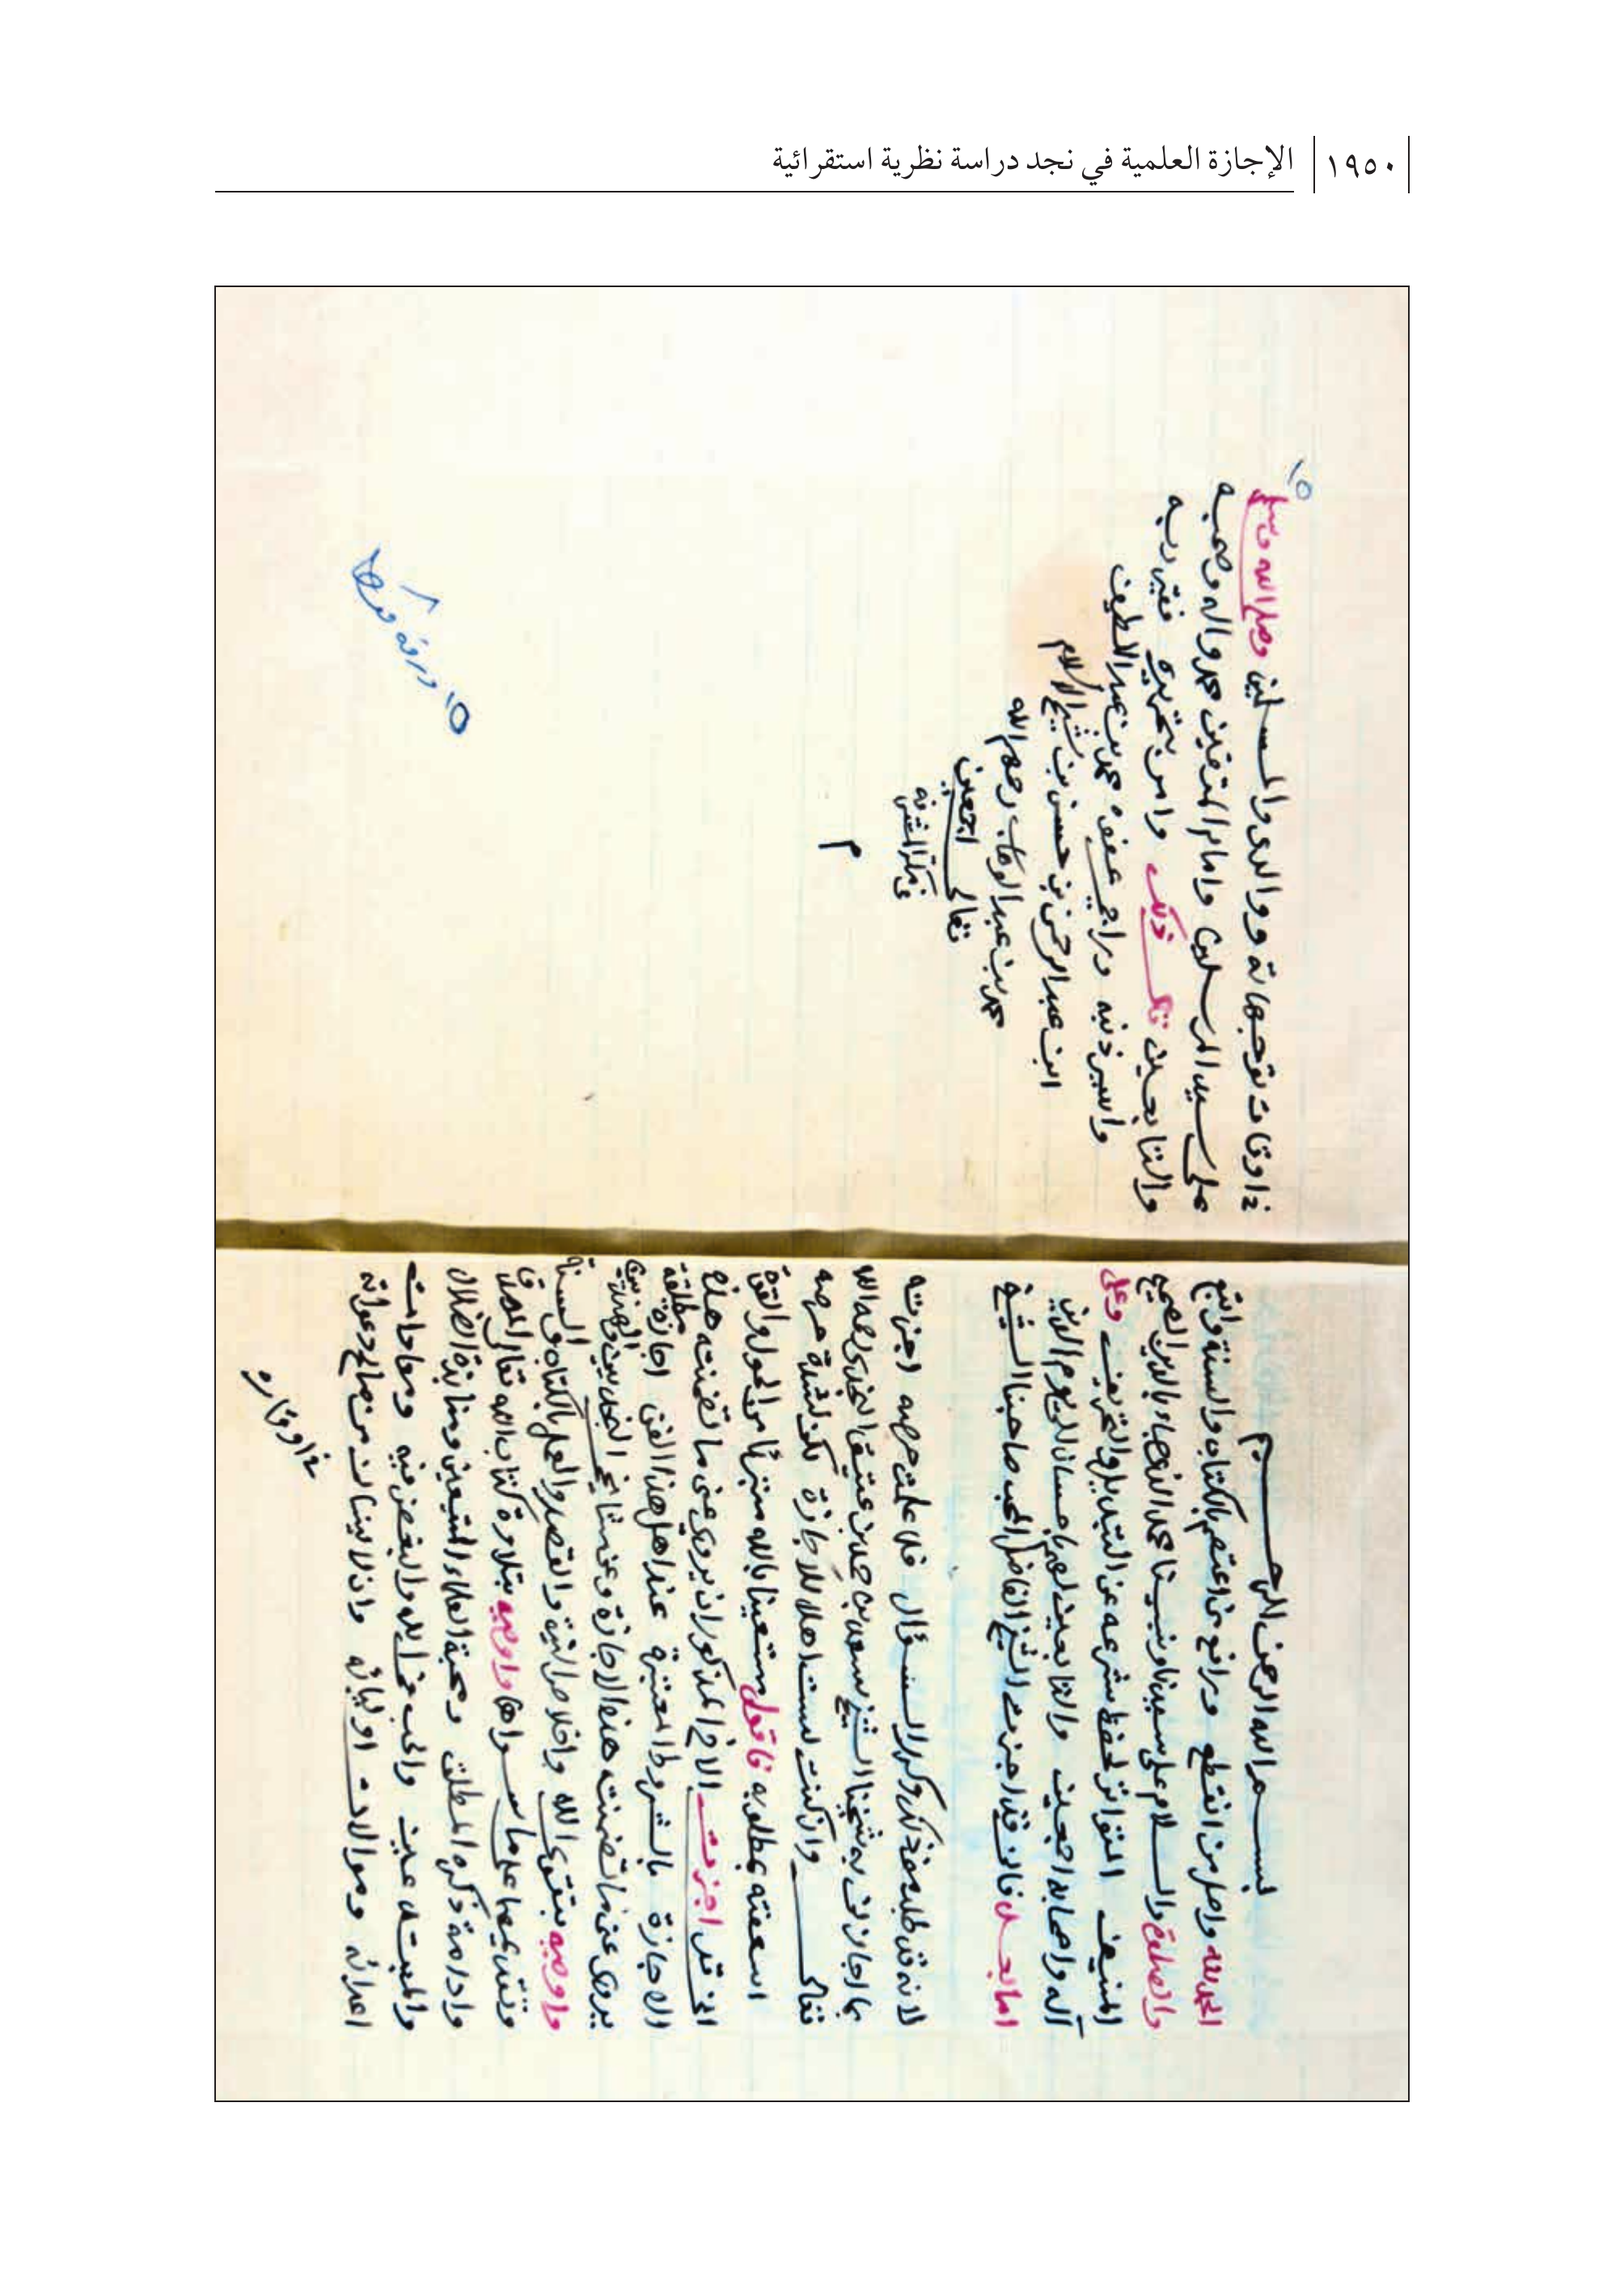 ١٩٥٠ الإجازة العلمية في نجد دراسة نظرية استقرائية
بسم الله الرحمن الرحيم
الحمد لله واصل من انقطع ورافع من اعتصم بالكتاب والسنة واتبع
والصلاة والسلام على سيدنا ونبينا محمد الذي جاء بالدين الصحيح
المنيف المتواتر لحفظ شرعه عن التبديل والتحريف وعلى
آله واصحابه اجمعين والتابعين لهم باحسان الى يوم الدين
اما بعد فانى قد اجزت الشيخ الفاضل المحب صاحبنا الشيخ
لانه قد طلب منى ذلك وكرر السؤال فلما علمت حرصه اجزته
بما اجازنى به شيخنا الشيخ سعد بن حمد بن عتيق النجدى رحمه الله
تعالى وان كنت لست اهلا للاجازة لكن لشدة حرصه
اسعفته بمطلوبه فاقول مستعينا بالله متبرئا من الحول والقوة
انى قد اجزت الاخ المذكور ان يروى عنى ما تضمنته هذه
الاجازة بالشروط المعتبرة عند اهل هذا الفن اجازة مطلقة
يروى عنى ما تضمنته هذه الاجازة وعن مشايخى النجديين والهنديين
واوصيه بتقوى الله واخلاص النية والقصد والعمل بالكتاب والسنة
وتقديمهما على ما سواهما واوصيه بتلاوة كتاب الله تعالى
وادامة ذكره المطلق ومحبة العلماء المتبعين ومنابذة الضلال
والمبتدعين والحب فى الله والبغض فيه ومعادات
اعدائه وموالات اوليائه وان لا ينسانى من صالح دعواته
فى اوقاته
١٥
فى اوقات توجهاته ووالدى والمسلمين وصلى الله وسلم
على سيد المرسلين وامام المتقين محمد واله وصحبه
والتابعين قال ذلك وامر بتحريره فقير ربه
واسير ذنبه وراجى عفوه محمد بن عبد اللطيف
ابن عبد الرحمن بن حسن بن شيخ الاسلام
محمد بن عبد الوهاب رحمهم الله
تعالى اجمعين
فى مكة المشرفة
م
١٥ ورقه